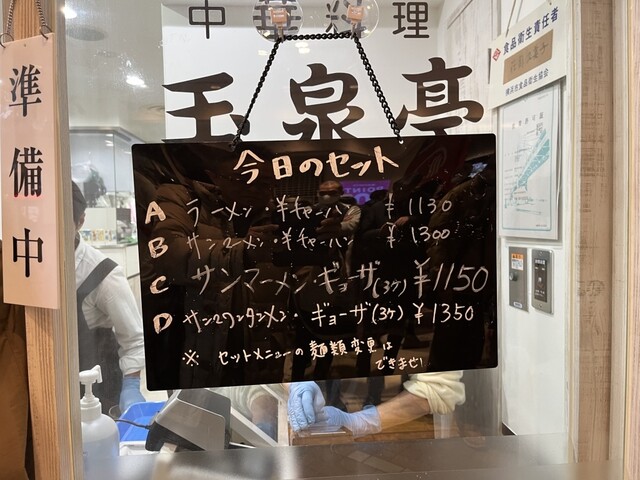 中華料理
玉泉亭
準備中
食品衛生責任者
横浜市食品衛生協会
今日のセット
A ラーメン・半チャーハン ¥1130
B サンマーメン・半チャーハン ¥1300
C サンマーメン・ギョーザ(3ケ) ¥1150
D サンマワンタンメン・ギョーザ(3ケ) ¥1350
※ セットメニューの麺類変更は
できません